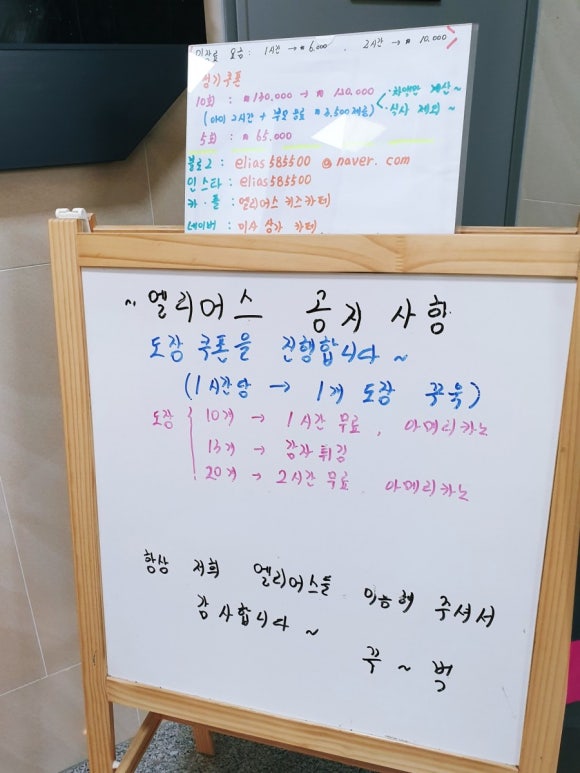 입장료 요금 : 1시간 → ₩ 6.000 . 2시간 → ₩ 10.000
정기쿠폰
10회 : ₩ 130.000 → ₩ 120.000 · 차액만 계산~
(아이 2시간 + 부모 음료 ₩ 3.500제공) · 식사 제외~
5회 : ₩ 65.000
블로그 : elias585500 @ naver. com
인스타 : elias585500
카·톨 : 엘리어스 키즈카페
네이버 : 미사 상가 카페
~ 엘리어스 공지 사항
도장 쿠폰을 진행합니다 ~
(1시간당 → 1개 도장 꾸욱)
도장 10개 → 1시간 무료 , 아메리카노
15개 → 감자 튀김
20개 → 2시간 무료 . 아메리카노
항상 저희 엘리어스를 이용해 주셔서
감사합니다 ~
꾸 ~ 벅